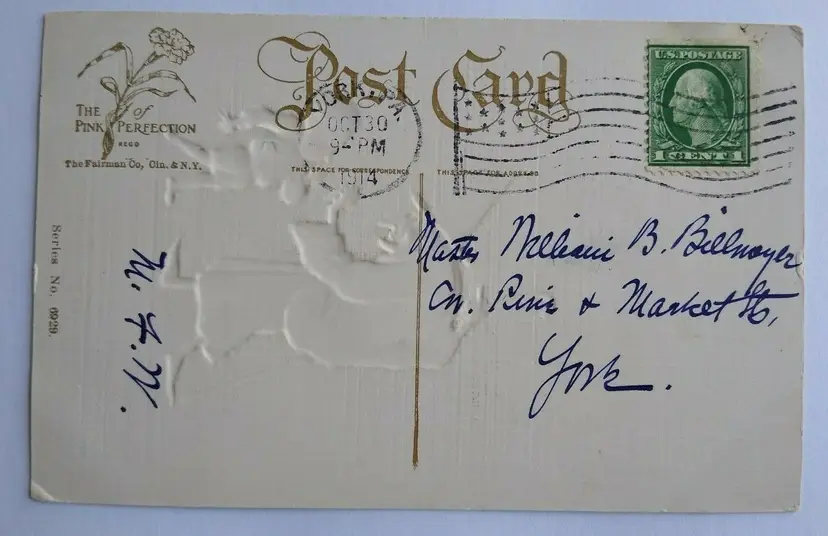 THE of
PINK PERFECTION
REGD
The Fairman Co, Cin. & N.Y.
Post Card
YORK, PA
OCT 30
9 - PM
1914
U.S. POSTAGE
1 CENT 1
THIS SPACE FOR CORRESPONDENCE
THIS SPACE FOR ADDRESS
Series No. 6929.
M. F. W.
Master William B. Billmeyer
Cor. Pine & Market Sts,
York.